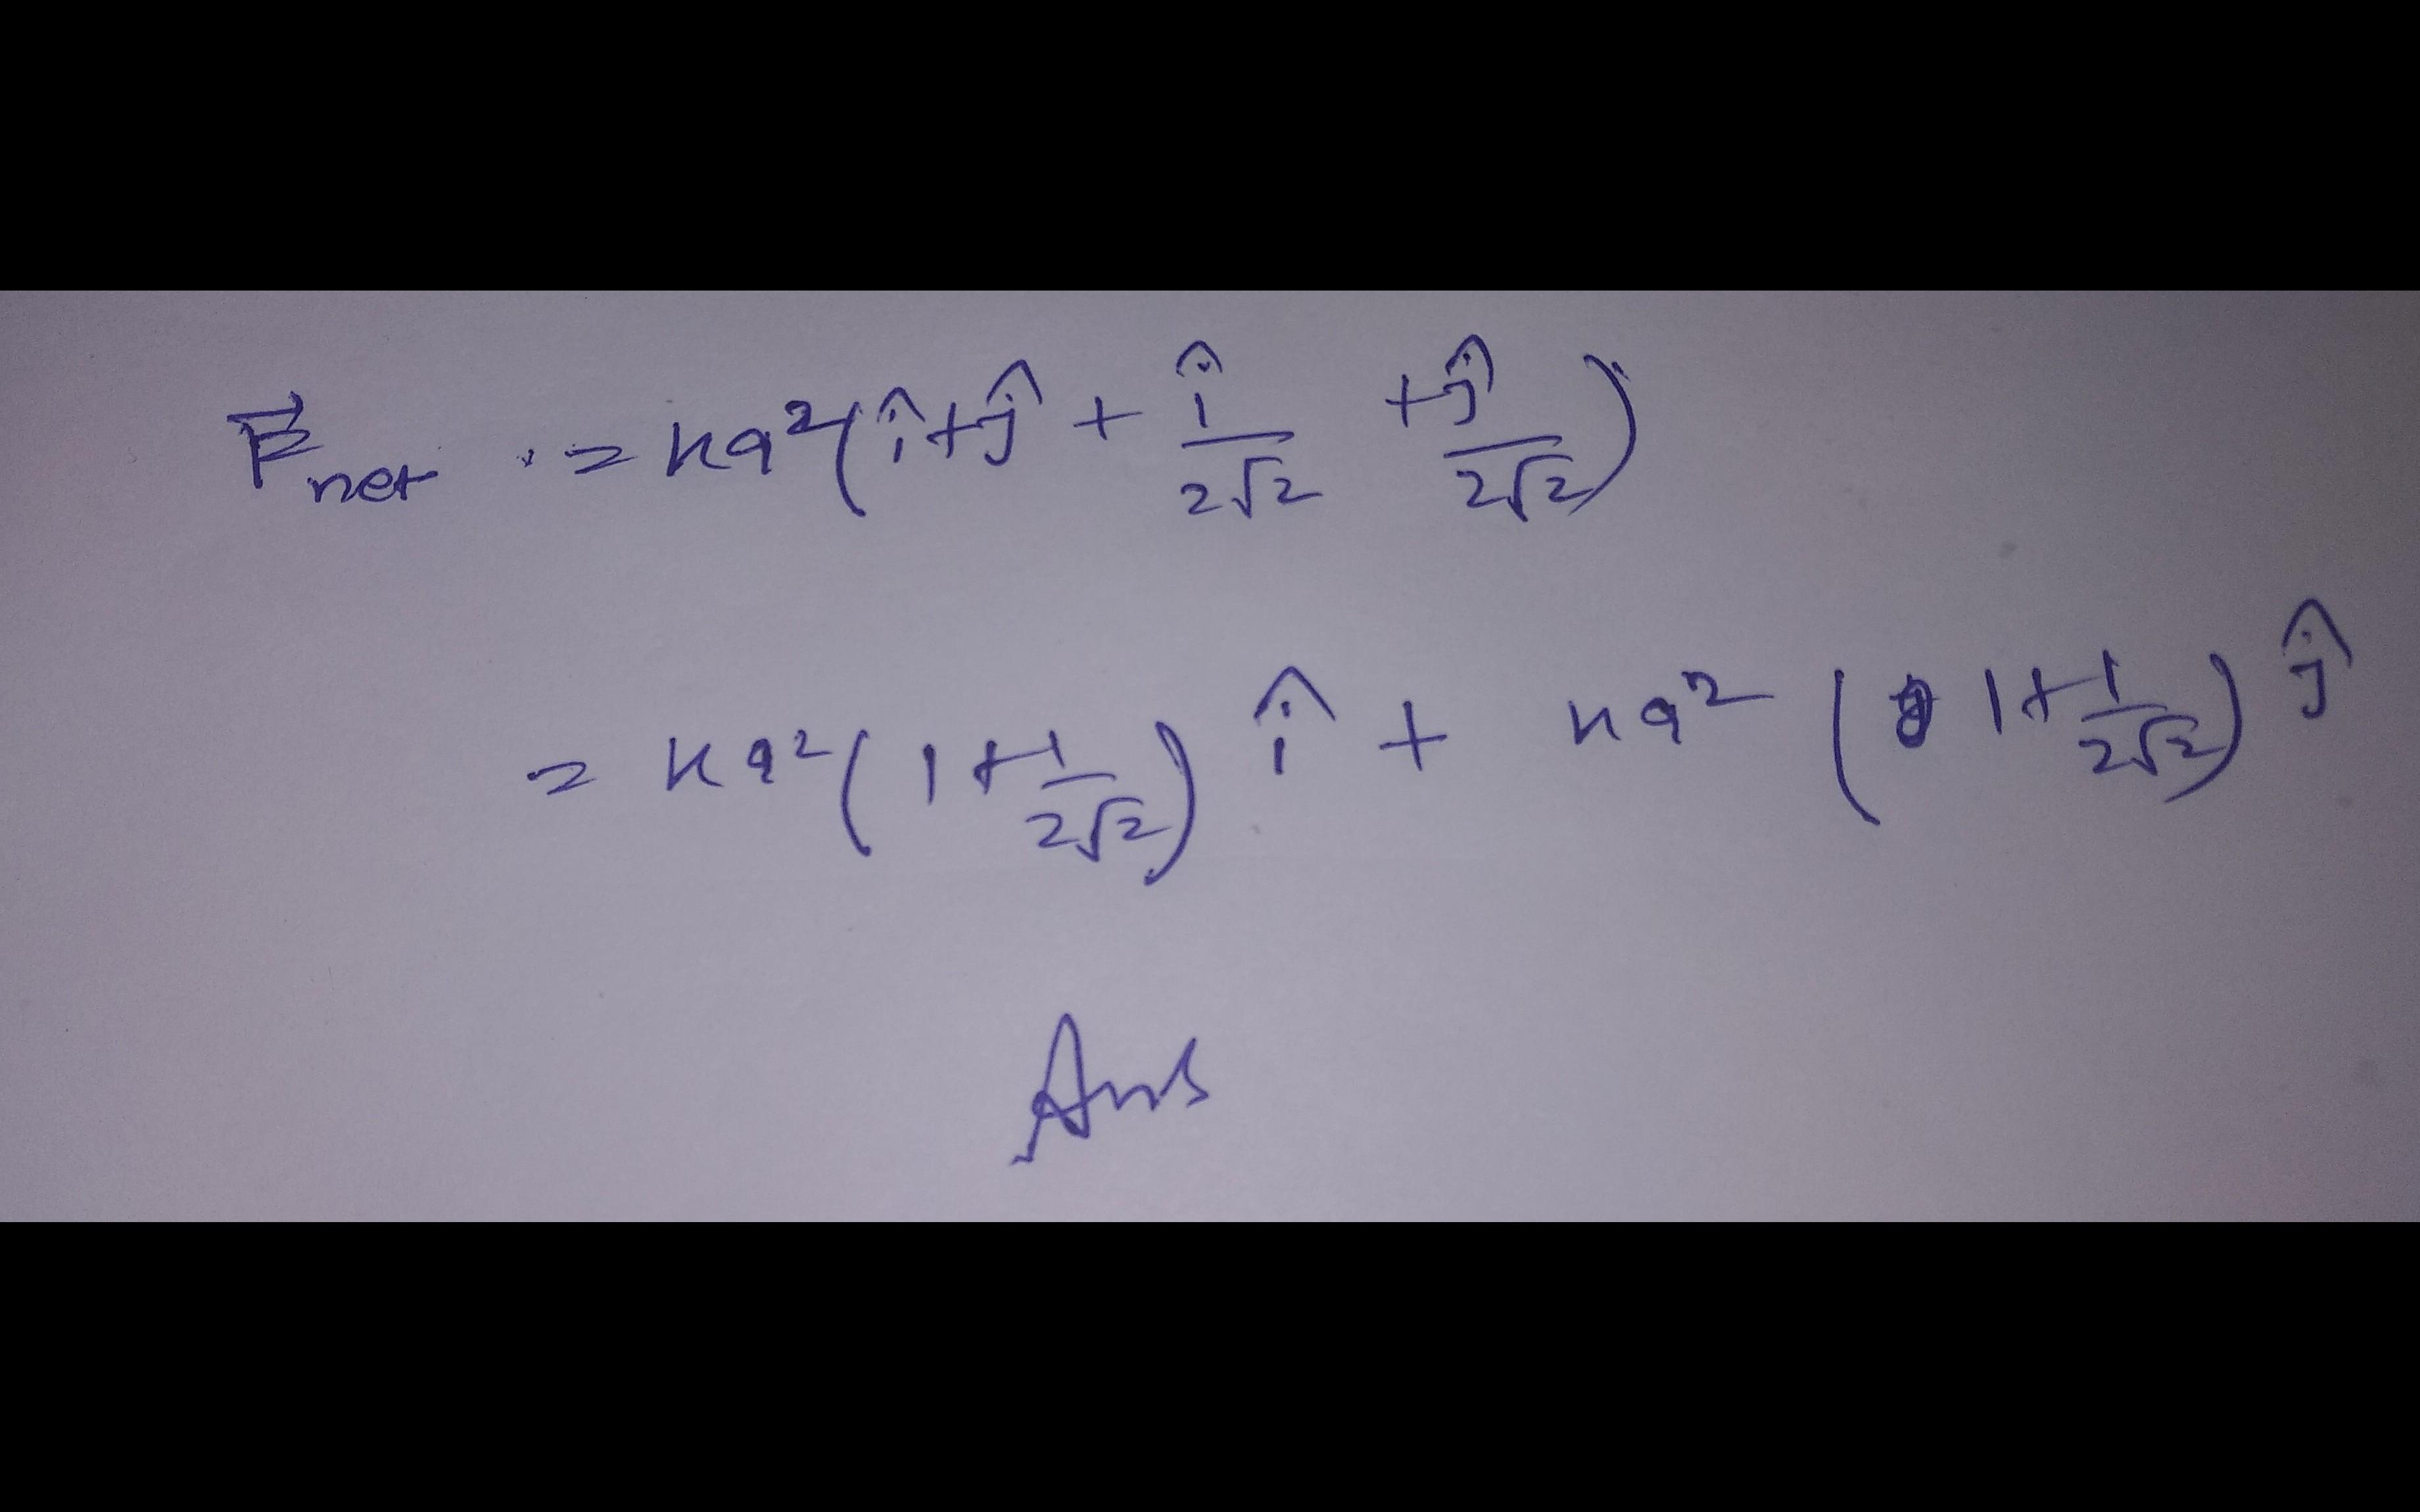 F⃗net = kq²(î+ĵ + î/2√2 + ĵ/2√2)
= kq²(1+1/2√2) î + kq²(1+1/2√2) ĵ
Ans